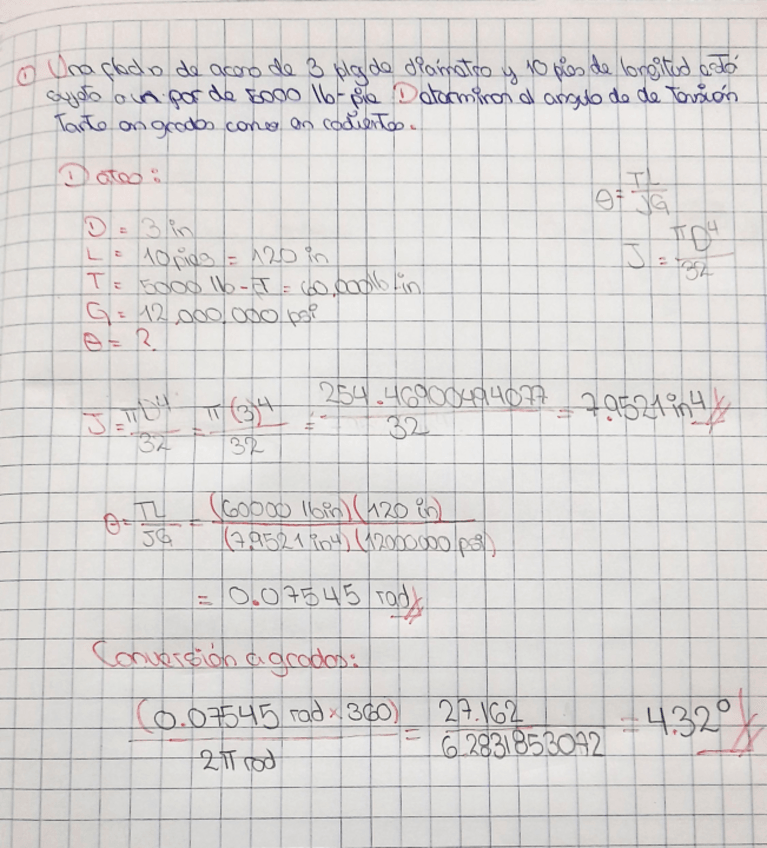 ① Una flecha de acero de 3 plg de diámetro y 10 pies de longitud está
sujeta a un par de 5000 lb-pie Determinar el angulo de de Torsión
Tanto en grados como en radientes.
Datos:
θ = TL/JG
J = πD⁴/32
D = 3 in
L = 10 pies = 120 in
T = 5000 lb-FT = 60,000 lb in
G = 12,000,000 psi
θ = ?
J = πD⁴/32 = π(3)⁴/32 = 254.46900494077/32 = 7.9521 in⁴
θ = TL/JG = (60000 lb in)(120 in)/(7.9521 in⁴)(12000000 psi)
= 0.07545 rad
Conversión a grados:
(0.07545 rad x 360)/2π rad = 27.162/6.2831853072 = 4.32°